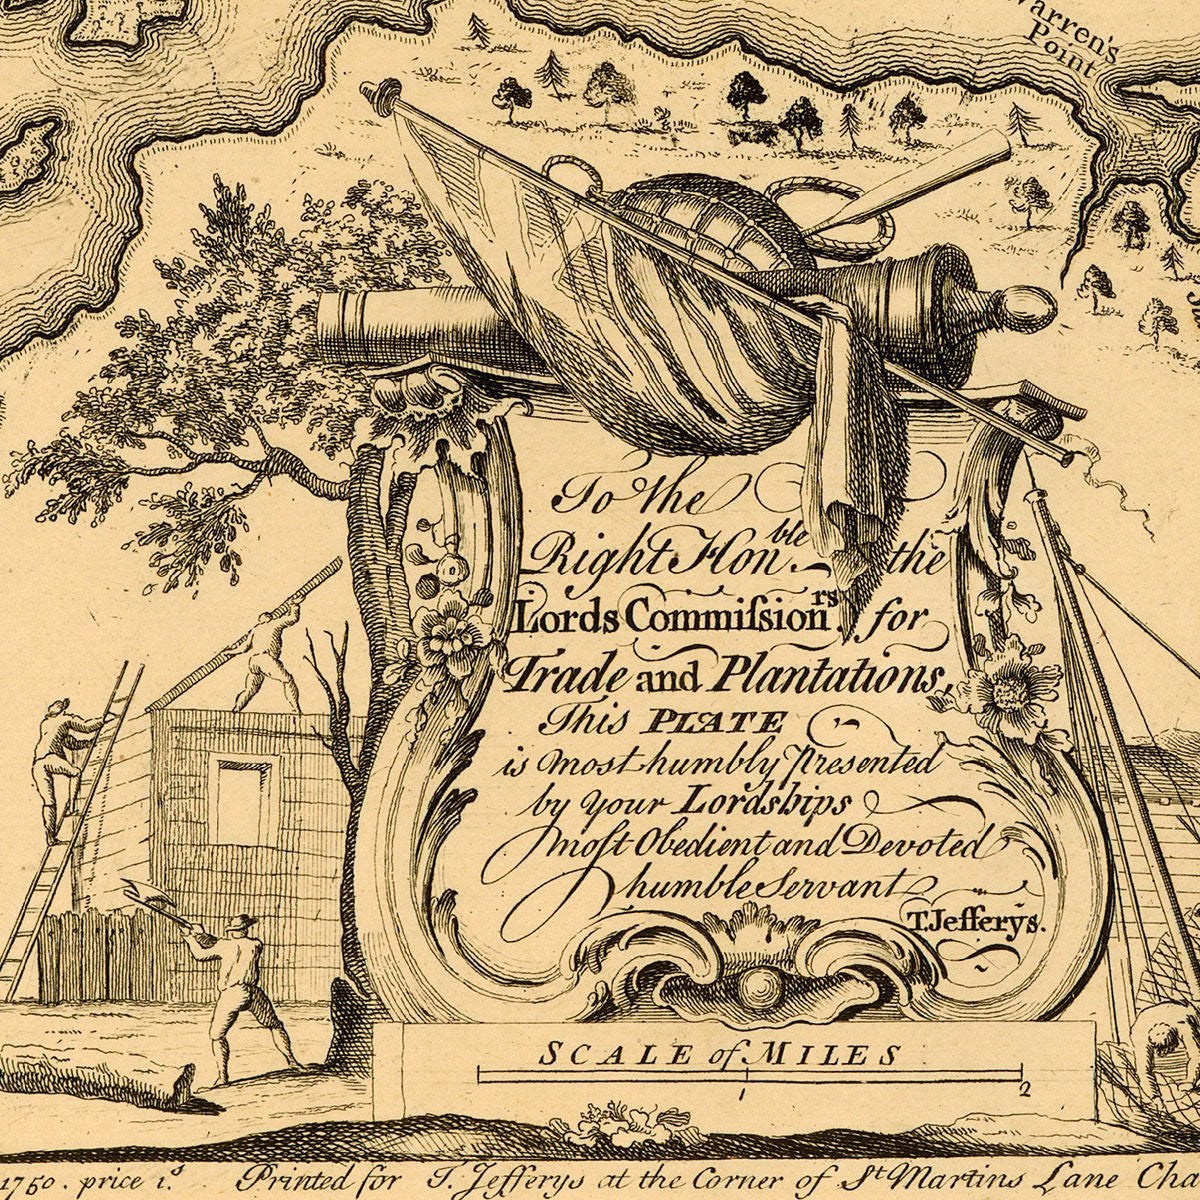 Warren's
Point
To the
Right Hon.ble the
Lords Commiſsion.rs for
Trade and Plantations,
This PLATE
is most humbly Presented
by your Lordships
moſt Obedient and Devoted
humble Servant
T. Jefferys.
SCALE of MILES
1 2
1750. price 1.s Printed for T. Jefferys at the Corner of St Martins Lane Cha